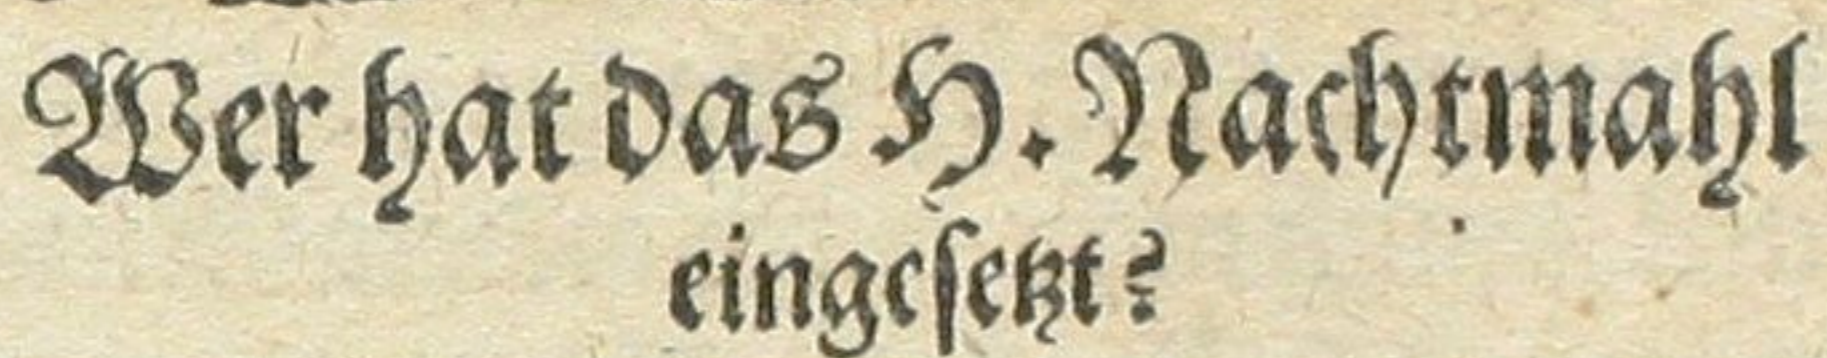 Wer hat das H. Nachtmahl
eingeſetzt?